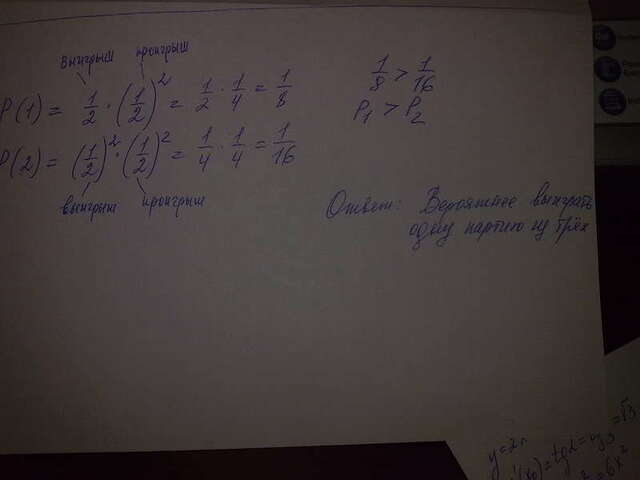 выигрыш проигрыш
P(1) = 1/2 · (1/2)² = 1/2 · 1/4 = 1/8
P(2) = (1/2)² · (1/2)² = 1/4 · 1/4 = 1/16
выигрыш проигрыш
1/8 > 1/16
P₁ > P₂
Ответ: Вероятнее выиграть
одну партию из трёх